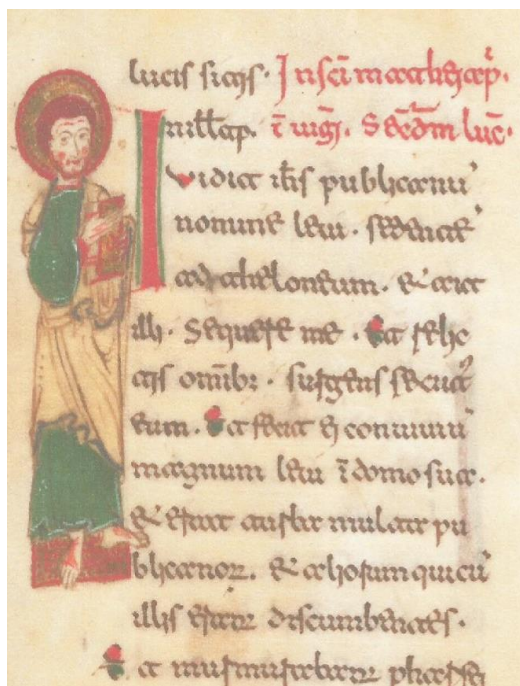 lucis sitis. In sci mathei ap.
In ill t̄p. ī uigī. Scdm luc̄.
Vidit ihs publicanū
nomine leui. sedentē
ad theloneum. et ait
illi. Sequere me. Et reli
ctis omib;. surgens secut'
eum. Et fecit ei conuiuiū
magnum leui ī domo sua.
et erat turba multa pu
blicanoꝝ. et aliorum qui cū
illis erant discumbentes.
Et murmurabant pharisei